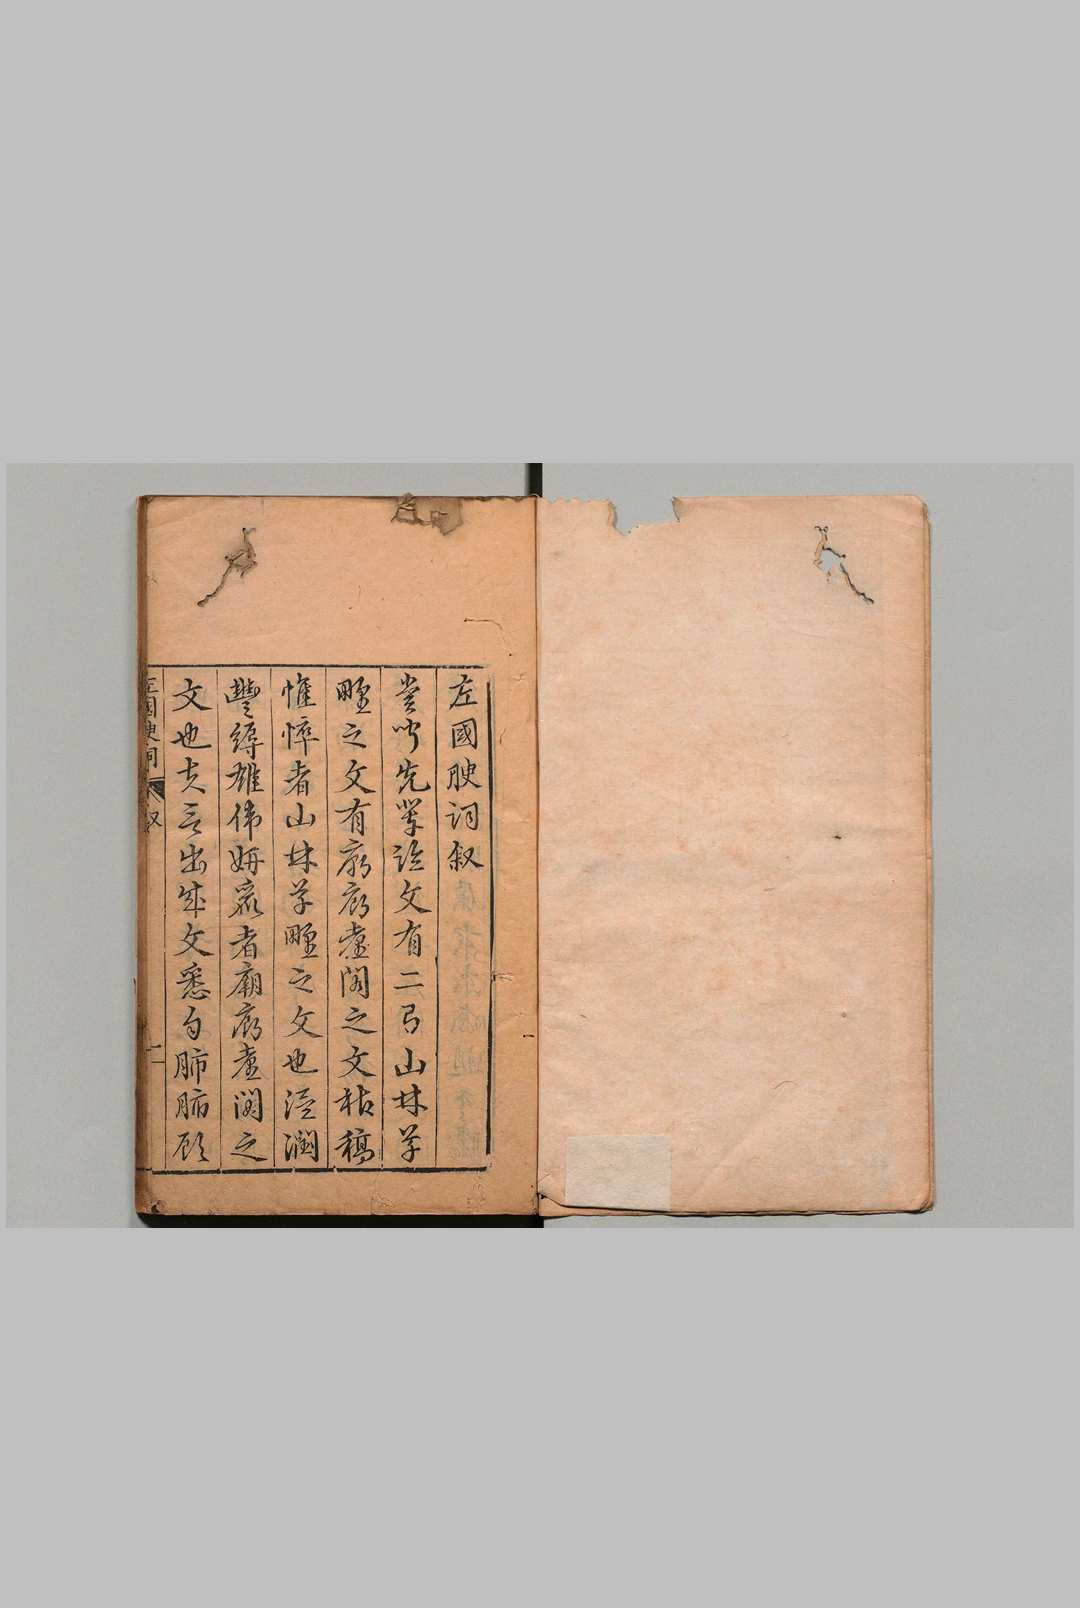 左國腴詞叙
嘗聞先輩論文有二曰山林草
野之文有廟廊臺閣之文枯槁
憔悴者山林草野之文也浸潤
豐縟雄偉妍麗者廟廊臺閣之
文也夫言出成文悉自肺腑顧
左國腴詞
叙
一